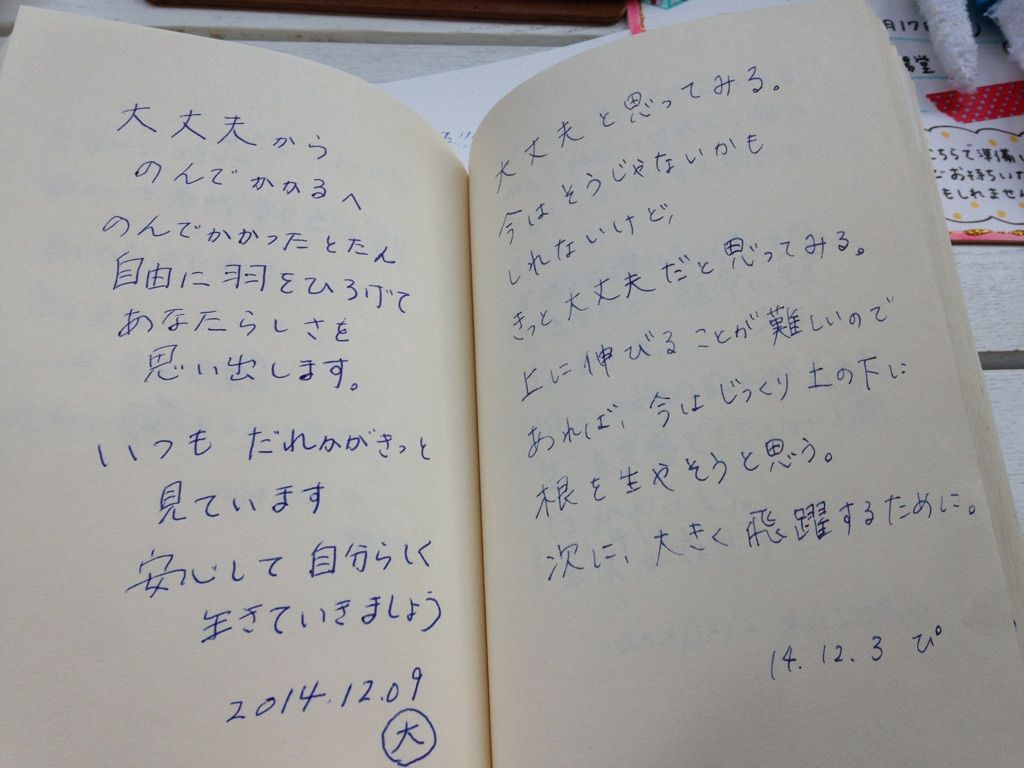 大丈夫から
のんでかかるへ
のんでかかったとたん
自由に羽をひろげて
あなたらしさを
思い出します。
いつも だれかがきっと
見ています
安心して 自分らしく
生きていきましょう
2014.12.09
大
大丈夫と思ってみる。
今はそうじゃないかも
しれないけど、
きっと大丈夫だと思ってみる。
上に伸びることが難しいので
あれば、今はじっくり土の下に
根を生やそうと思う。
次に、大きく飛躍するために。
14.12.3 ぴ
月17
堂
ちらで準備
お持ちいた
もしれません